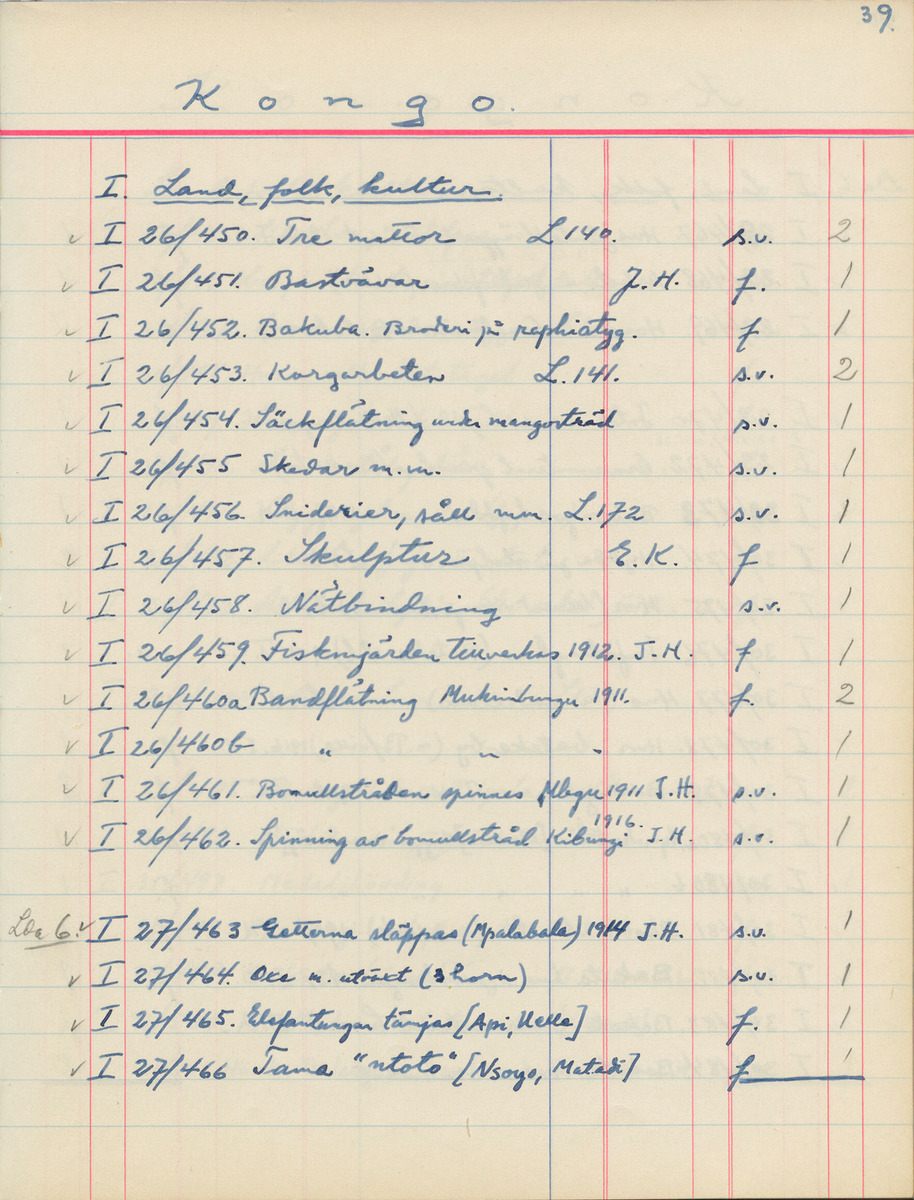 39.
Kongo.
I. Land, folk, kultur.
✓ I 26/450. Tre mattor L 140. s.v. 2
✓ I 26/451. Bastvävar J.H. f. 1
✓ I 26/452. Bakuba. Broderi på raphiatyg. f 1
✓ I 26/453. Korgarbeten L. 141. s.v. 2
✓ I 26/454. Säckflätning under mangoträd s.v. 1
✓ I 26/455 Skedar m.m. s.v. 1
✓ I 26/456. Sniderier, såll mm. L. 172 s.v. 1
✓ I 26/457. Skulptur E.K. f 1
✓ I 26/458. Nätbindning s.v. 1
✓ I 26/459. Fiskmjärden tillverkas 1912. J.H. f 1
✓ I 26/460a Bandflätning Mukimbungu 1911. f. 2
✓ I 26/460b " " " 1
✓ I 26/461. Bomullstråden spinnes 1911 J.H. s.v. 1
✓ I 26/462. Spinning av bomullstråd Kibunzi 1916. J.H. s.v. 1
6. ✓ I 27/463 Getterna släppas (Mpalabala) 1914 J.H. s.v. 1
✓ I 27/464. Oxe m. utväxt (3 horn) s.v. 1
✓ I 27/465. Elefantungar tämjas [Api, Uelle] f. 1
✓ I 27/466 Tama "ntoto" [Nsoyo, Matadi] f 1